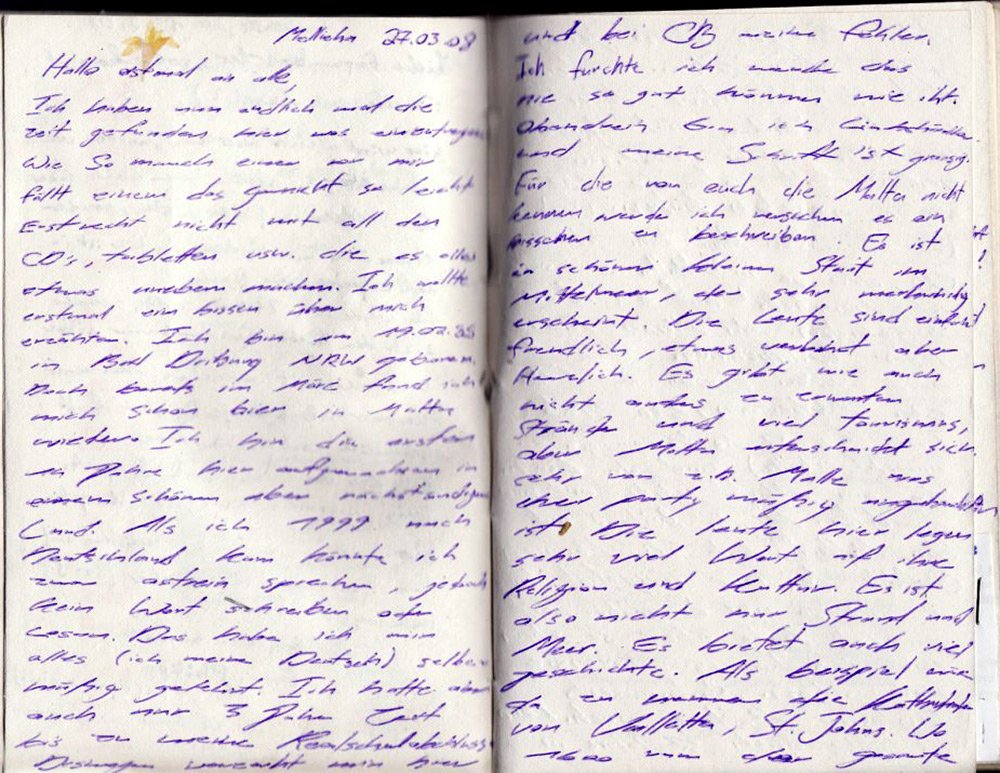 Mellieha 27.03.08
Hallo erstmal an alle,
Ich haben nun endlich mal die
Zeit gefunden hier was einzutragen
Wie so manch einer vor mir
fällt einem das garnicht so leicht
Erst recht nicht mit all den
CD's, tabletten usw. die es alles
etwas uneben machen. Ich wollte
erstmal ein bissen über mich
erzählen. Ich bin am
in Bad Driburg NRW geboren.
Doch bereits im März fand ich
mich schon hier in Malta
wieder. Ich bin die ersten
14 Jahre hier aufgewachsen in
einem schönen aber rückständigen
Land. Als ich 1999 nach
Deutschland kam konnte ich
zwar astrein sprechen, jedoch
kein Wort schreiben oder
Lesen. Das habe ich mir
alles (ich meine Deutsch) selber
mäßig gelehrt. Ich hatte aber
auch nur 3 Jahre Zeit
bis zu meine Realschulabschluss
Deswegen verzeiht mir hier
und bei CB meine fehler.
Ich fürchte ich werde das
nie so gut können wie ihr.
Obendrein bin ich Linkshänder
und meine Schrift ist grausig.
Für die von euch die Malta nicht
kennen werde ich versuchen es ein
bisschen zu beschreiben. Es ist
ein schöner kleiner Staat im
Mittelmeer, der sehr merkwürdig
erscheint. Die Leute sind einfach
freundlich, etwas verbohrt aber
Herzlich. Es gibt wie auch
nicht anders zu erwarten
Strände und viel Tourismus,
aber Malta unterscheidet sich
sehr von z.B. Malle was
eher party mäßig
ist. Die leute hier legen
sehr viel Wert auf ihre
Religion und Kultur. Es ist
also nicht nur Strand und
Meer. Es bietet auch viel
geschichte. Als beispiel wäre
da zu nennen die Kathedrale
von Valletta, St. Johns. Wo
1600 von der gesamte